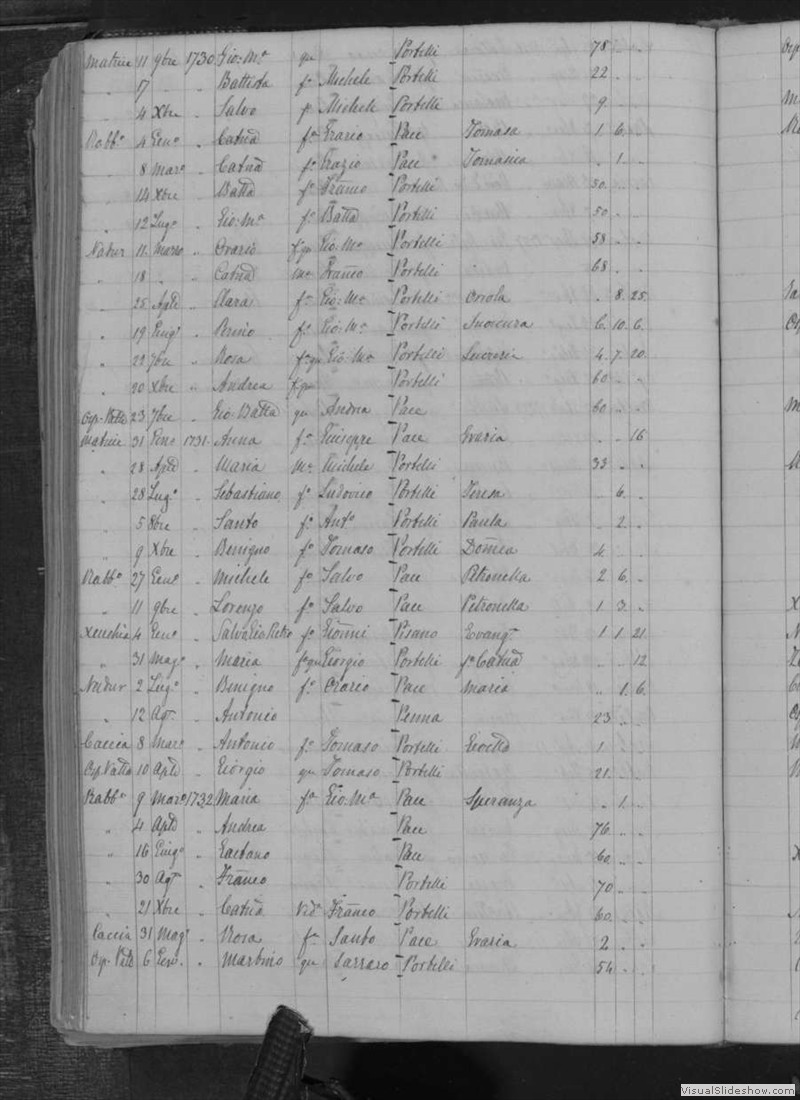 Matrice 11 9bre 1730 Gio: Mᵃ qᵐ Portelli 78 " "
" 17 " " Battista fᵒ Michele Portelli 22 " "
" 4 Xbre " Salvo fᵒ Michele Portelli 9 " "
Rabbᵒ 4 Genᵒ " Catnā fᵃ Grazio Pace Tomasa 1 6 "
" 8 Marᵒ " Catnā fᵃ Grazio Pace Tomasica " 1 "
" 14 Xbre " Battā fᵒ Franco Portelli 50 " "
" 12 Lugᵒ " Gio: Mᵃ fᵒ Battā Portelli 50 " "
Nadur 11 Marzo " Orazio fᵒ qᵐ Gio: Mᵃ Portelli 58 " "
" 18 " " Catnā Mᵉ Franco Portelli 68 " "
" 25 Aple " Clara fᵃ Gio: Mᵃ Portelli Orsola " 8 25
" 19 Giugᵒ " fᵒ Gio: Mᵃ Portelli 6 10 6
" 22 7bre " Rosa fᵃ qᵐ Gio: Mᵃ Portelli Lucrezia 4 7 20
" 20 Xbre " Andrea fᵒ qᵐ Portelli 60 " "
23 7bre " Gio: Battā qᵐ Andrea Pace 60 " "
Matrice 31 Genᵒ 1731 Anna fᵃ Giuseppe Pace Grazia " " 16
" 28 Aple " Maria Mᵉ Michele Portelli 33 " "
" 28 Lugᵒ " Sebastiano fᵒ Ludovico Portelli Teresa " 6 "
" 5 8bre " Santo fᵒ Antᵒ Portelli Paula " 2 "
" 9 Xbre " Benigno fᵒ Tomaso Portelli Domca 4 " "
Rabbᵒ 27 Genᵒ " Michele fᵒ Salvo Pace Petronella 2 6 "
" 11 9bre " Lorenzo fᵒ Salvo Pace Petronella 1 3 "
Xeuchia 4 Genᵒ " Salvo Gio Pietro fᵒ Gionni Pisano Evangᵃ 1 1 21
" 31 Magᵒ " Maria fᵃ qᵐ Giorgio Portelli fᵃ Catnā " " 12
Nadur 2 Lugᵒ " Benigno fᵒ Orazio Pace Maria " 1 6
" 12 Agᵗᵒ " Antonio Penna 23 " "
Caccia 8 Marᵒ " Antonio fᵒ Tomaso Portelli 1 " "
10 Aple " Giorgio qᵐ Tomaso Portelli 21 " "
Rabbᵒ 9 Marᵒ 1732 Maria fᵃ Gio: Mᵃ Pace Speranza " 1 "
" 4 Aple " Andrea Pace 76 " "
" 16 Giugᵒ " Gaetano Pace 60 " "
" 30 Agᵗᵒ " Franco Portelli 70 " "
" 21 Xbre " Catnā Vidᵃ Franco Portelli 60 " "
Caccia 31 Magᵒ " Rosa fᵃ Santo Pace Grazia 2 " "
6 Genᵒ " Martino qᵐ Portelli 54 " "
VisualSlideshow.com